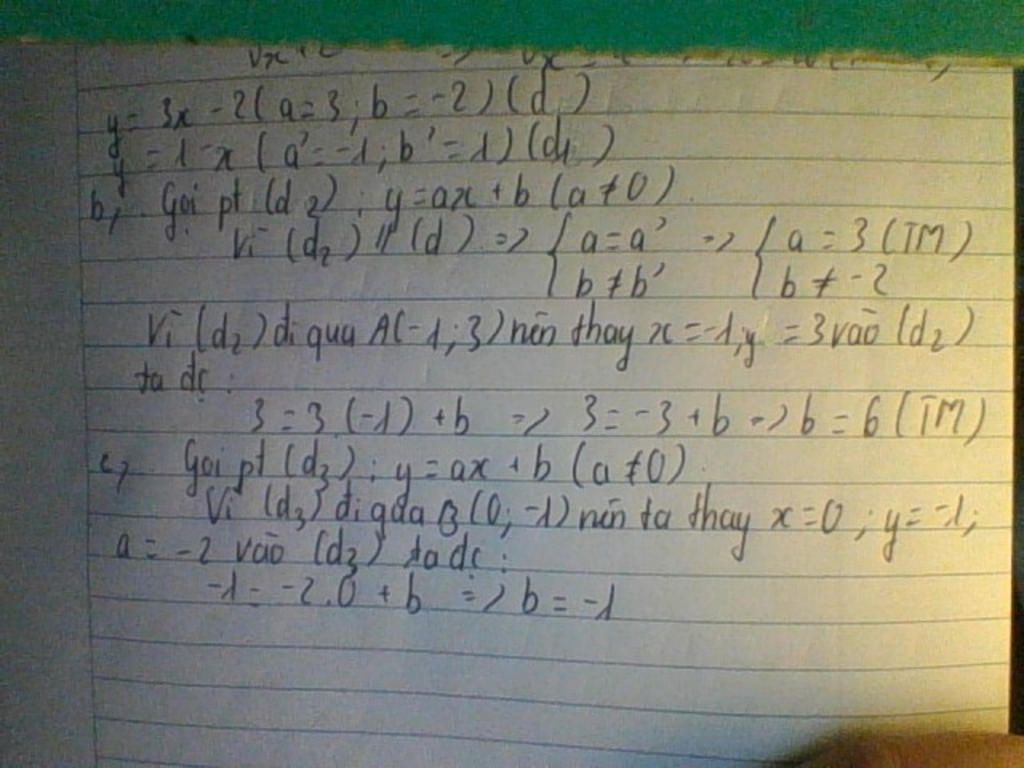 y = 3x - 2 (a = 3; b = -2) (d)
y = 1 - x (a' = -1; b' = 1) (d1)
b, Gọi pt (d2): y = ax + b (a ≠ 0).
Vì (d2) // (d) => { a = a' => { a = 3 (TM)
b ≠ b' b ≠ -2
Vì (d2) đi qua A(-1; 3) nên thay x = -1, y = 3 vào (d2)
ta đc:
3 = 3 (-1) + b => 3 = -3 + b => b = 6 (TM)
c, Gọi pt (d3): y = ax + b (a ≠ 0).
Vì (d3) đi qua B(0; -1) nên ta thay x = 0; y = -1;
a = -2 vào (d3) ta đc:
-1 = -2.0 + b => b = -1